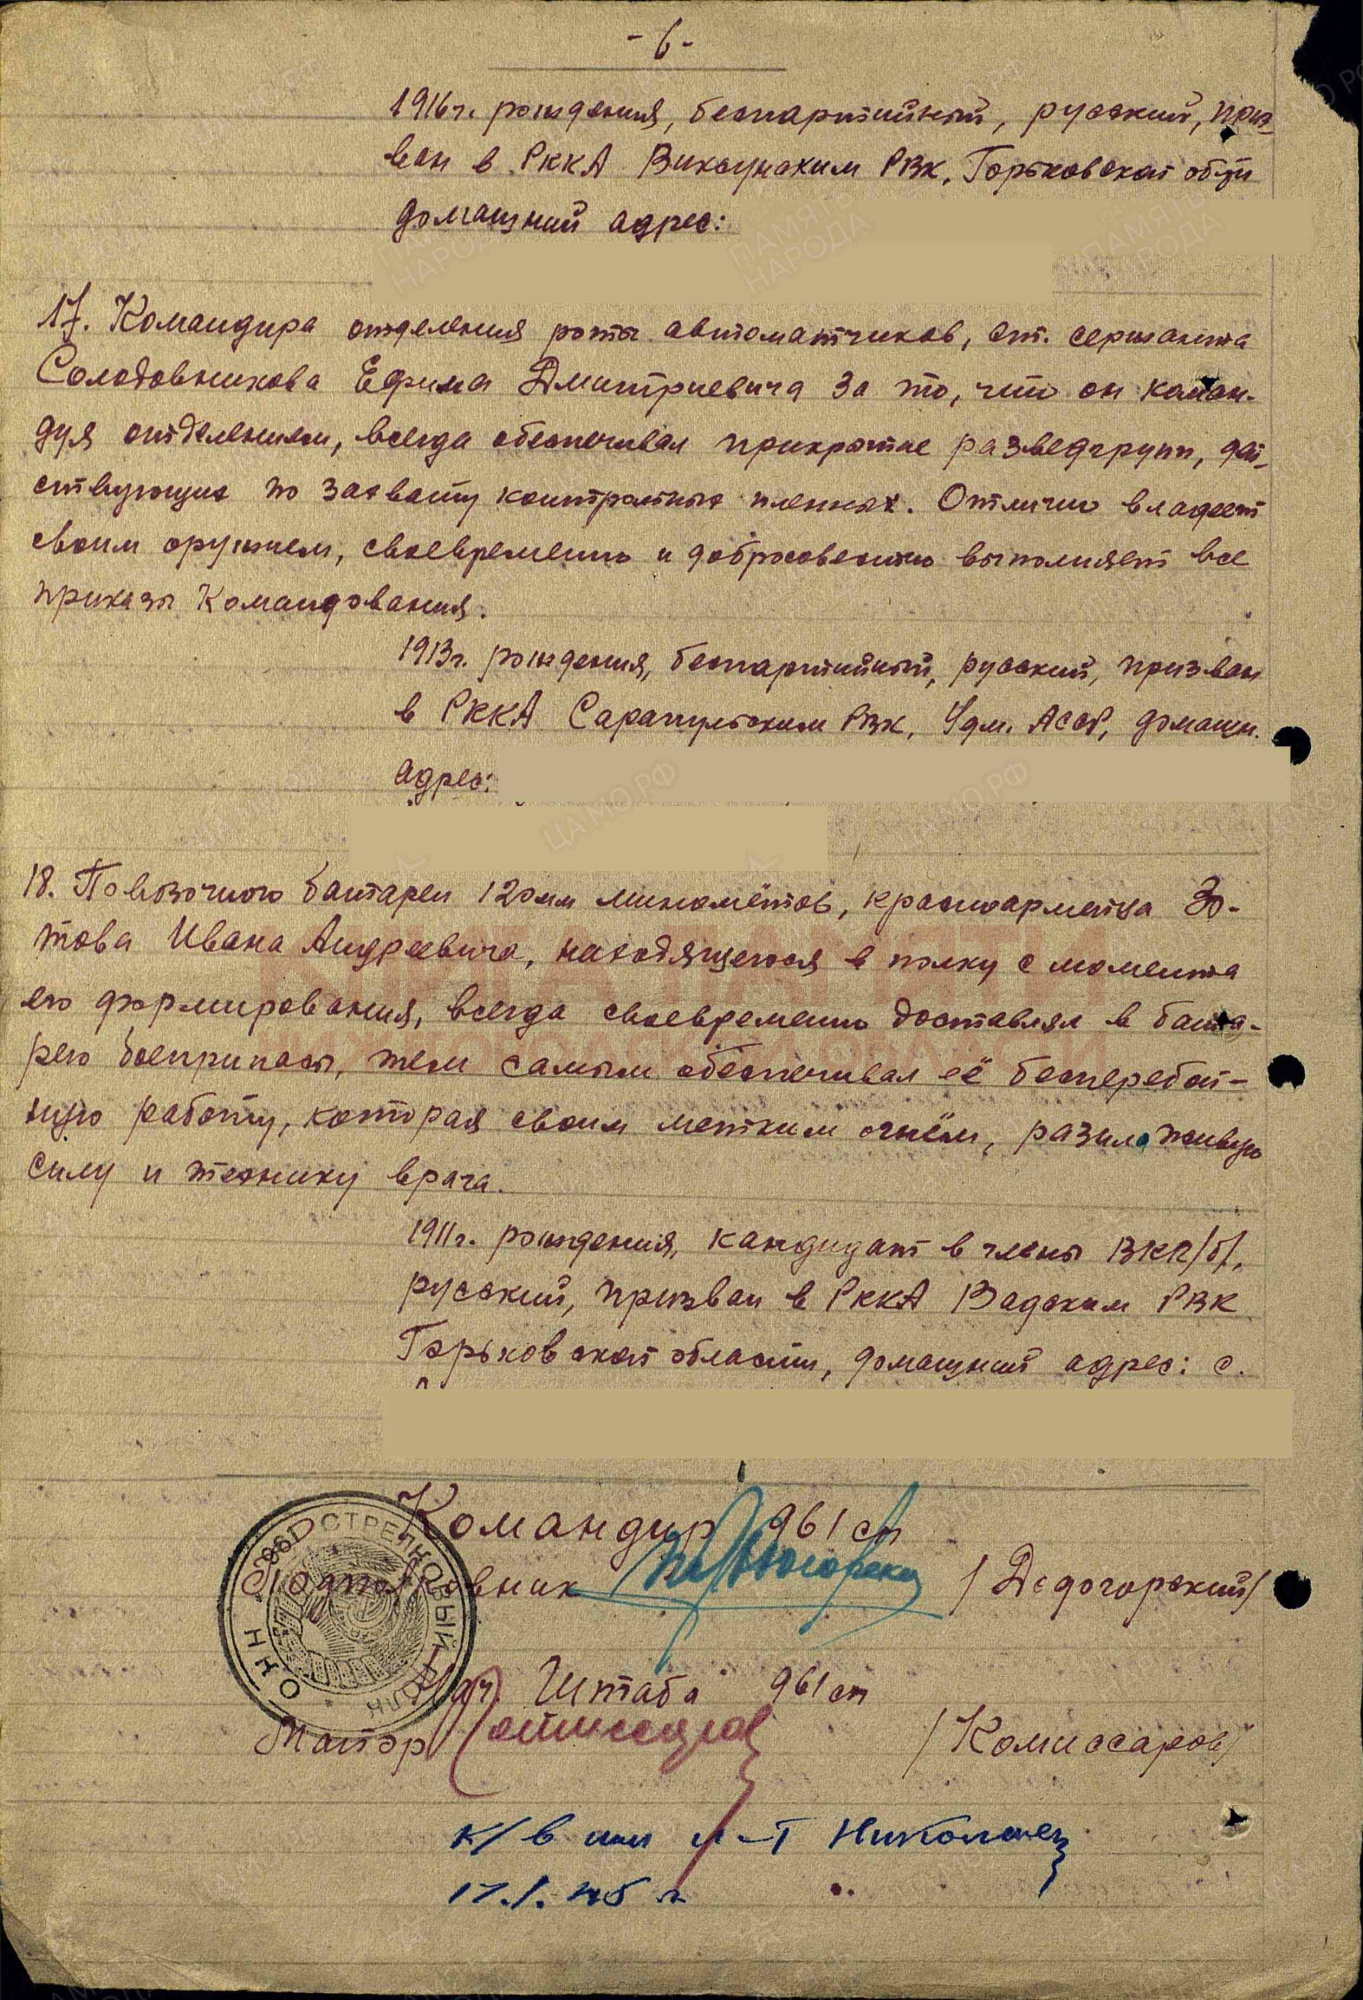 - 6 -
1916 г. рождения, беспартийный, русский, приз-
ван в РККА Виксунским РВК, Горьковской обл.
домашний адрес:
17. Командира отделения роты автоматчиков, ст. сержанта
Солодовникова Ефима Дмитриевича за то, что он коман-
дуя отделением, всегда обеспечивал прикрытие разведгрупп, дей-
ствующие по захвату контрольных пленных. Отлично владеет
своим оружием, своевременно и добросовестно выполняет все
приказы Командования.
1913 г. рождения, беспартийный, русский, призван
в РККА Сарапульским РВК, Удм. АССР, домашн.
адрес:
18. Повозочного батареи 120мм миномётов, красноармейца Зо-
това Ивана Андреевича, находящегося в полку с момента
его формирования, всегда своевременно доставлял в бата-
рею боеприпасы, тем самым обеспечивал её бесперебой-
ную работу, которая своим метким огнём, разила живую
силу и технику врага.
1911 г. рождения, кандидат в члены ВКП/б/,
русский, призван в РККА Вадским РВК
Горьковской области, домашний адрес: с.
Командир 961 сп
Подполковник /Дедогорский/
Нач. Штаба 961 сп
Майор Комиссаров /Комиссаров/
17.1.45 г.
СТРЕЛКОВЫЙ ПОЛК
КНИГА ПАМЯТИ
НИЖЕГОРОДСКОЙ ОБЛАСТИ
ПАМЯТЬ НАРОДА
ЦАМО РФ